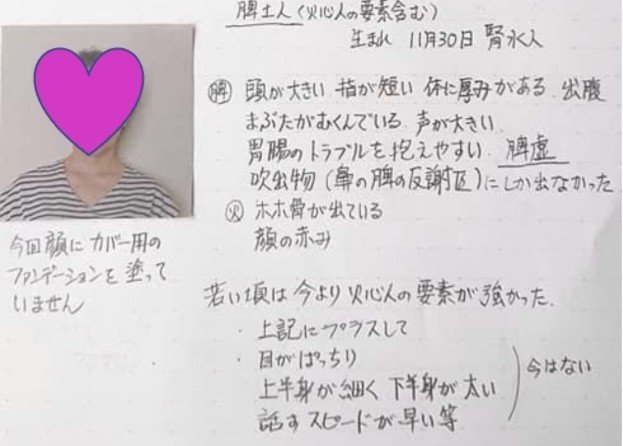 脾土人(火心人の要素含む)
生まれ 11月30日 腎水人
脾 頭が大きい 指が短い 体に厚みがある 出腹
まぶたがむくんでいる 声が大きい
胃腸のトラブルを抱えやすい 脾虚
吹出物(鼻の脾の反謝区)にしか出なかった
火 ホホ骨が出ている
顔の赤み
今回顔にカバー用の
ファンデーションを塗って
いません
若い頃は今より火心人の要素が強かった.
・上記にプラスして
・目がぱっちり
上半身が細く 下半身が太い
話すスピードが早い等
今はない